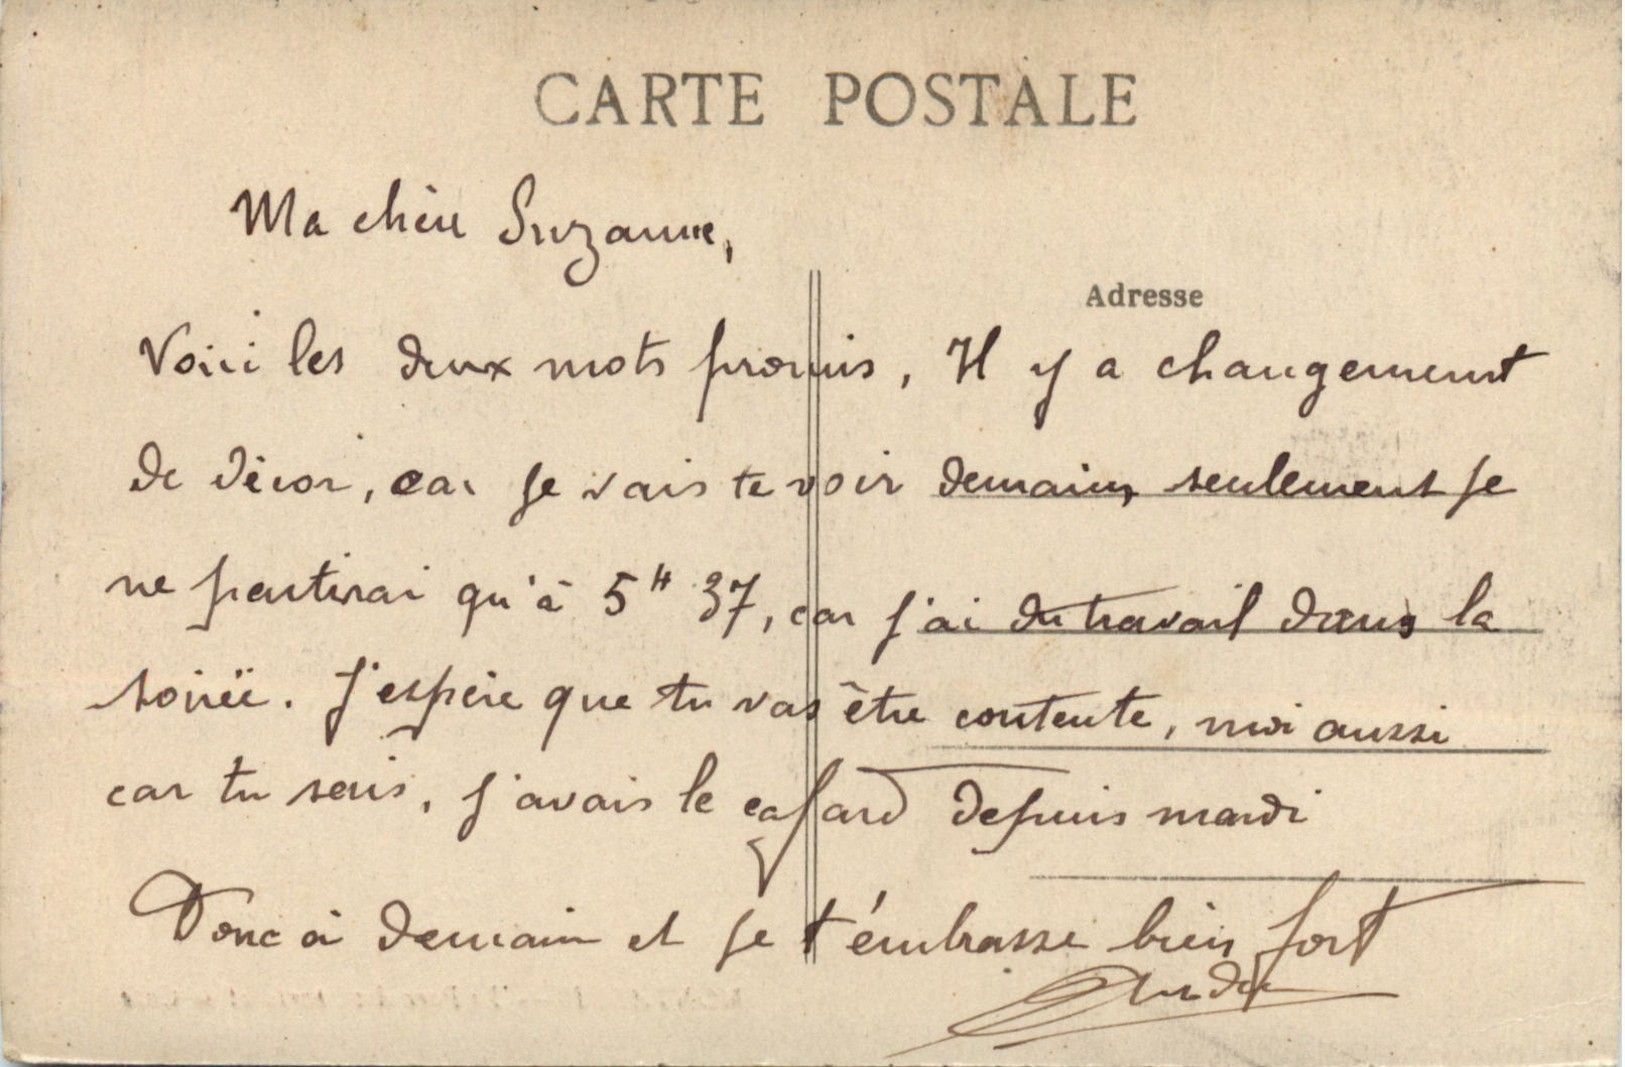 CARTE POSTALE
Ma chère Suzanne,
Adresse
Voici les deux mots promis, Il y a changement
de décor, car je vais te voir demain, seulement je
ne partirai qu'à 5H 37, car j'ai du travail dans la
soirée. J'espère que tu vas être contente, moi aussi
car tu sais, j'avais le cafard depuis mardi
Donc à demain et je t'embrasse bien fort
André